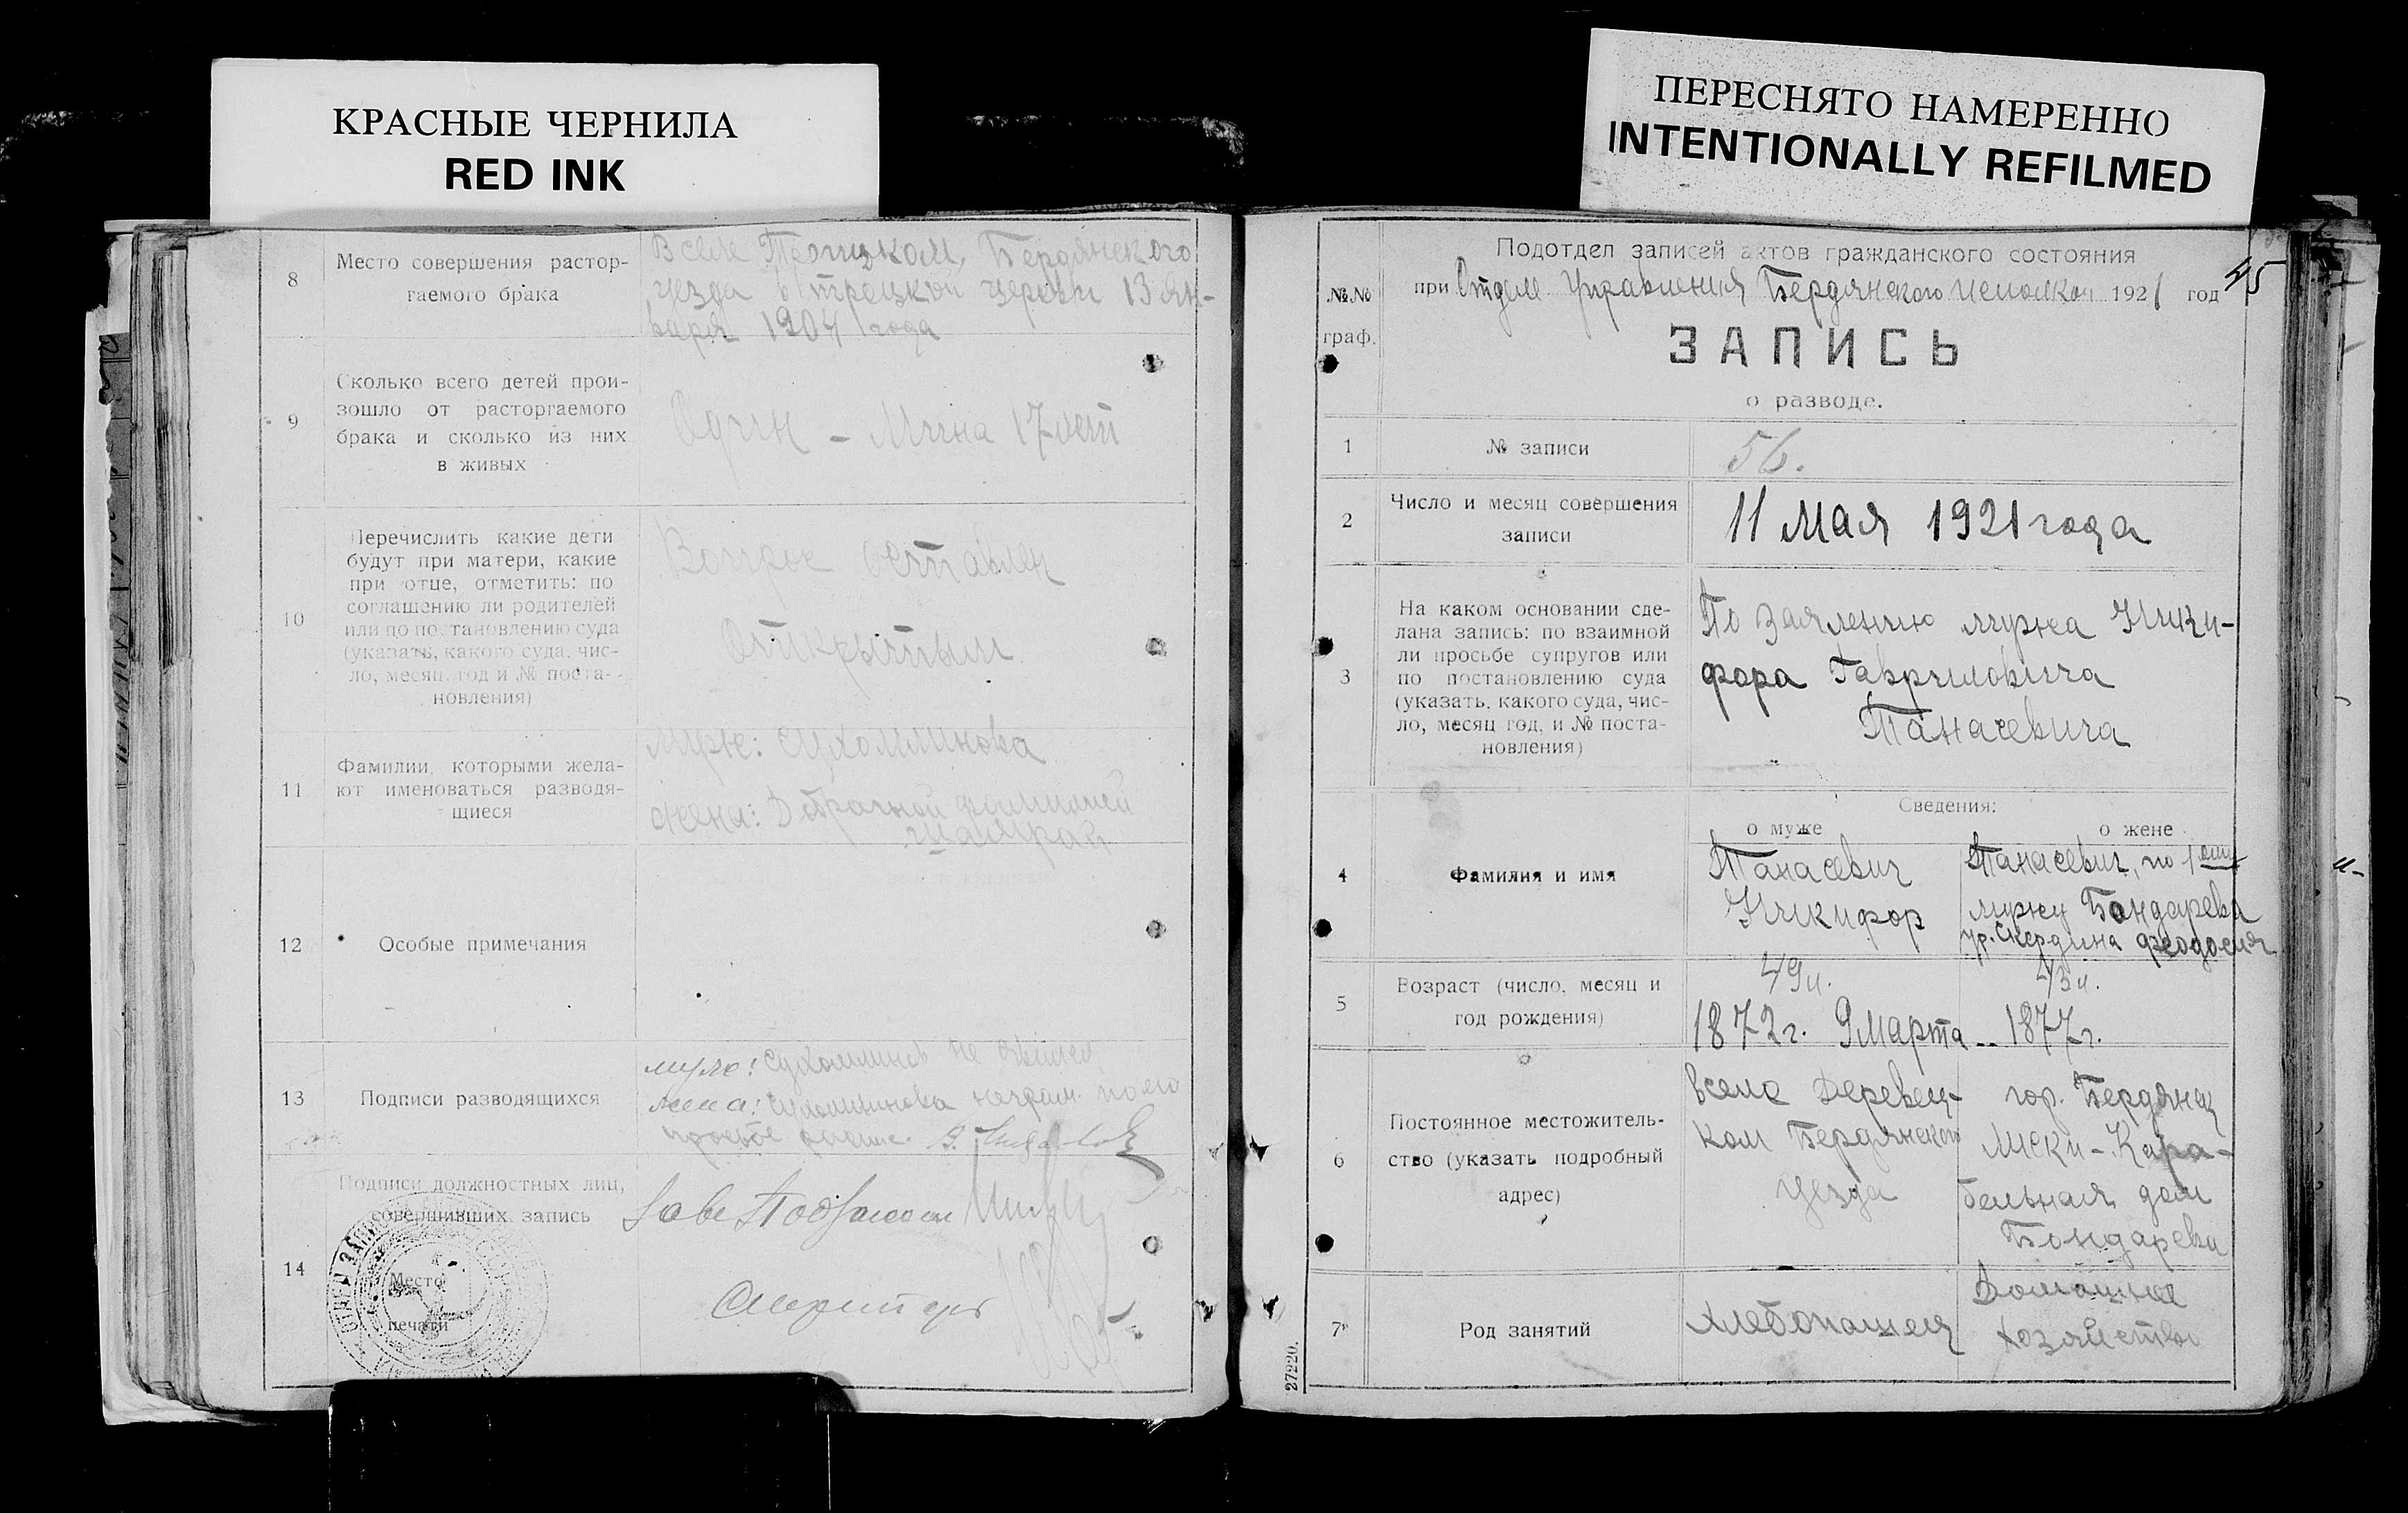 КРАСНЫЕ ЧЕРНИЛА
RED INK
ПЕРЕСНЯТО НАМЕРЕННО
INTENTIONALLY REFILMED
8
Место совершения растор-
гаемого брака
В селе Троицком, Бердянского
уезда в троицкой церкви 13 ян-
варя 1904 года
9
Сколько всего детей прои-
зошло от расторгаемого
брака и сколько из них
в живых
Один – Мина 17 лет
10
Перечислить какие дети
будут при матери, какие
при отце, отметить: по
соглашению ли родителей
или по постановлению суда
(указать, какого суда, чис-
ло, месяц, год и № поста-
новления)
Вопрос оставлен
открытым
11
Фамилии, которыми жела-
ют именоваться разводя-
щиеся
муж: Сухомлинова
жена: Добрачной фамилией
12
Особые примечания
13
Подписи разводящихся
муж: Сухомлинов не явился
жена: Сухомлинова неграм. по его
просьбе
14
Подписи должностных лиц,
совершивших запись
Место
печати
Зав.
Секретарь
Подотдел записей актов гражданского состояния
при Отделе Управления Бердянского Исполком 1921 год
45
№№
граф.
ЗАПИСЬ
о разводе.
1
№ записи
56.
2
Число и месяц совершения
записи
11 Мая 1921 года
3
На каком основании сде-
лана запись: по взаимной
ли просьбе супругов или
по постановлению суда
(указать, какого суда, чис-
ло, месяц год, и № поста-
новления)
По заявлению мужа Ники-
фора Гавриловича
Танасевича
Сведения:
о муже
о жене
4
Фамилия и имя
Танасевич
Никифор
Танасевич, по 1ому
мужу Бондарева
ур. Скердина Феодосия
5
Возраст (число, месяц и
год рождения)
49 л.
1872 г. 9 марта
43 л.
1877 г.
6
Постоянное местожитель-
ство (указать подробный
адрес)
в селе Деревец-
ком Бердянского
уезда
гор. Бердянск
Лиски-Кара-
бельная дом
Бондарева
7
Род занятий
Хлебопашец
Домашнее
хозяйство
27220.